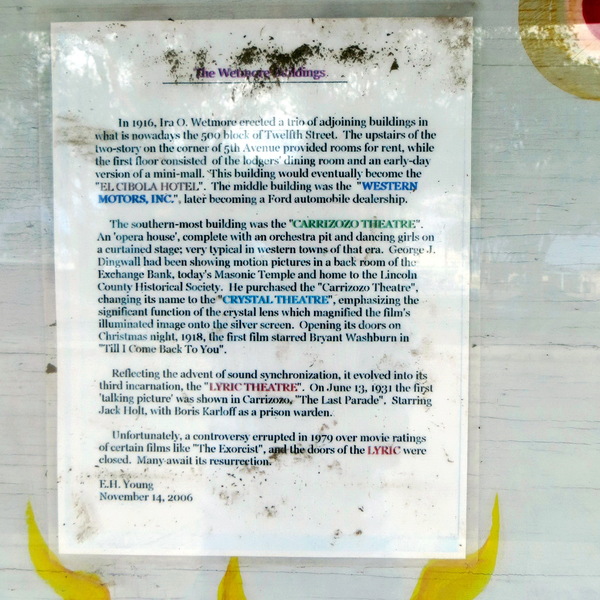 The Wetmore Buildings
In 1916, Ira O. Wetmore erected a trio of adjoining buildings in
what is nowadays the 500 block of Twelfth Street. The upstairs of the
two-story on the corner of 5th Avenue provided rooms for rent, while
the first floor consisted of the lodgers' dining room and an early-day
version of a mini-mall. This building would eventually become the
"EL CIBOLA HOTEL". The middle building was the "WESTERN
MOTORS, INC.", later becoming a Ford automobile dealership.
The southern-most building was the "CARRIZOZO THEATRE".
An 'opera house', complete with an orchestra pit and dancing girls on
a curtained stage; very typical in western towns of that era. George J.
Dingwall had been showing motion pictures in a back room of the
Exchange Bank, today's Masonic Temple and home to the Lincoln
County Historical Society. He purchased the "Carrizozo Theatre",
changing its name to the "CRYSTAL THEATRE", emphasizing the
significant function of the crystal lens which magnified the film's
illuminated image onto the silver screen. Opening its doors on
Christmas night, 1918, the first film starred Bryant Washburn in
"Till I Come Back To You".
Reflecting the advent of sound synchronization, it evolved into its
third incarnation, the "LYRIC THEATRE". On June 13, 1931 the first
'talking picture' was shown in Carrizozo, "The Last Parade". Starring
Jack Holt, with Boris Karloff as a prison warden.
Unfortunately, a controversy errupted in 1979 over movie ratings
of certain films like "The Exorcist", and the doors of the LYRIC were
closed. Many await its resurrection.
E.H. Young
November 14, 2006